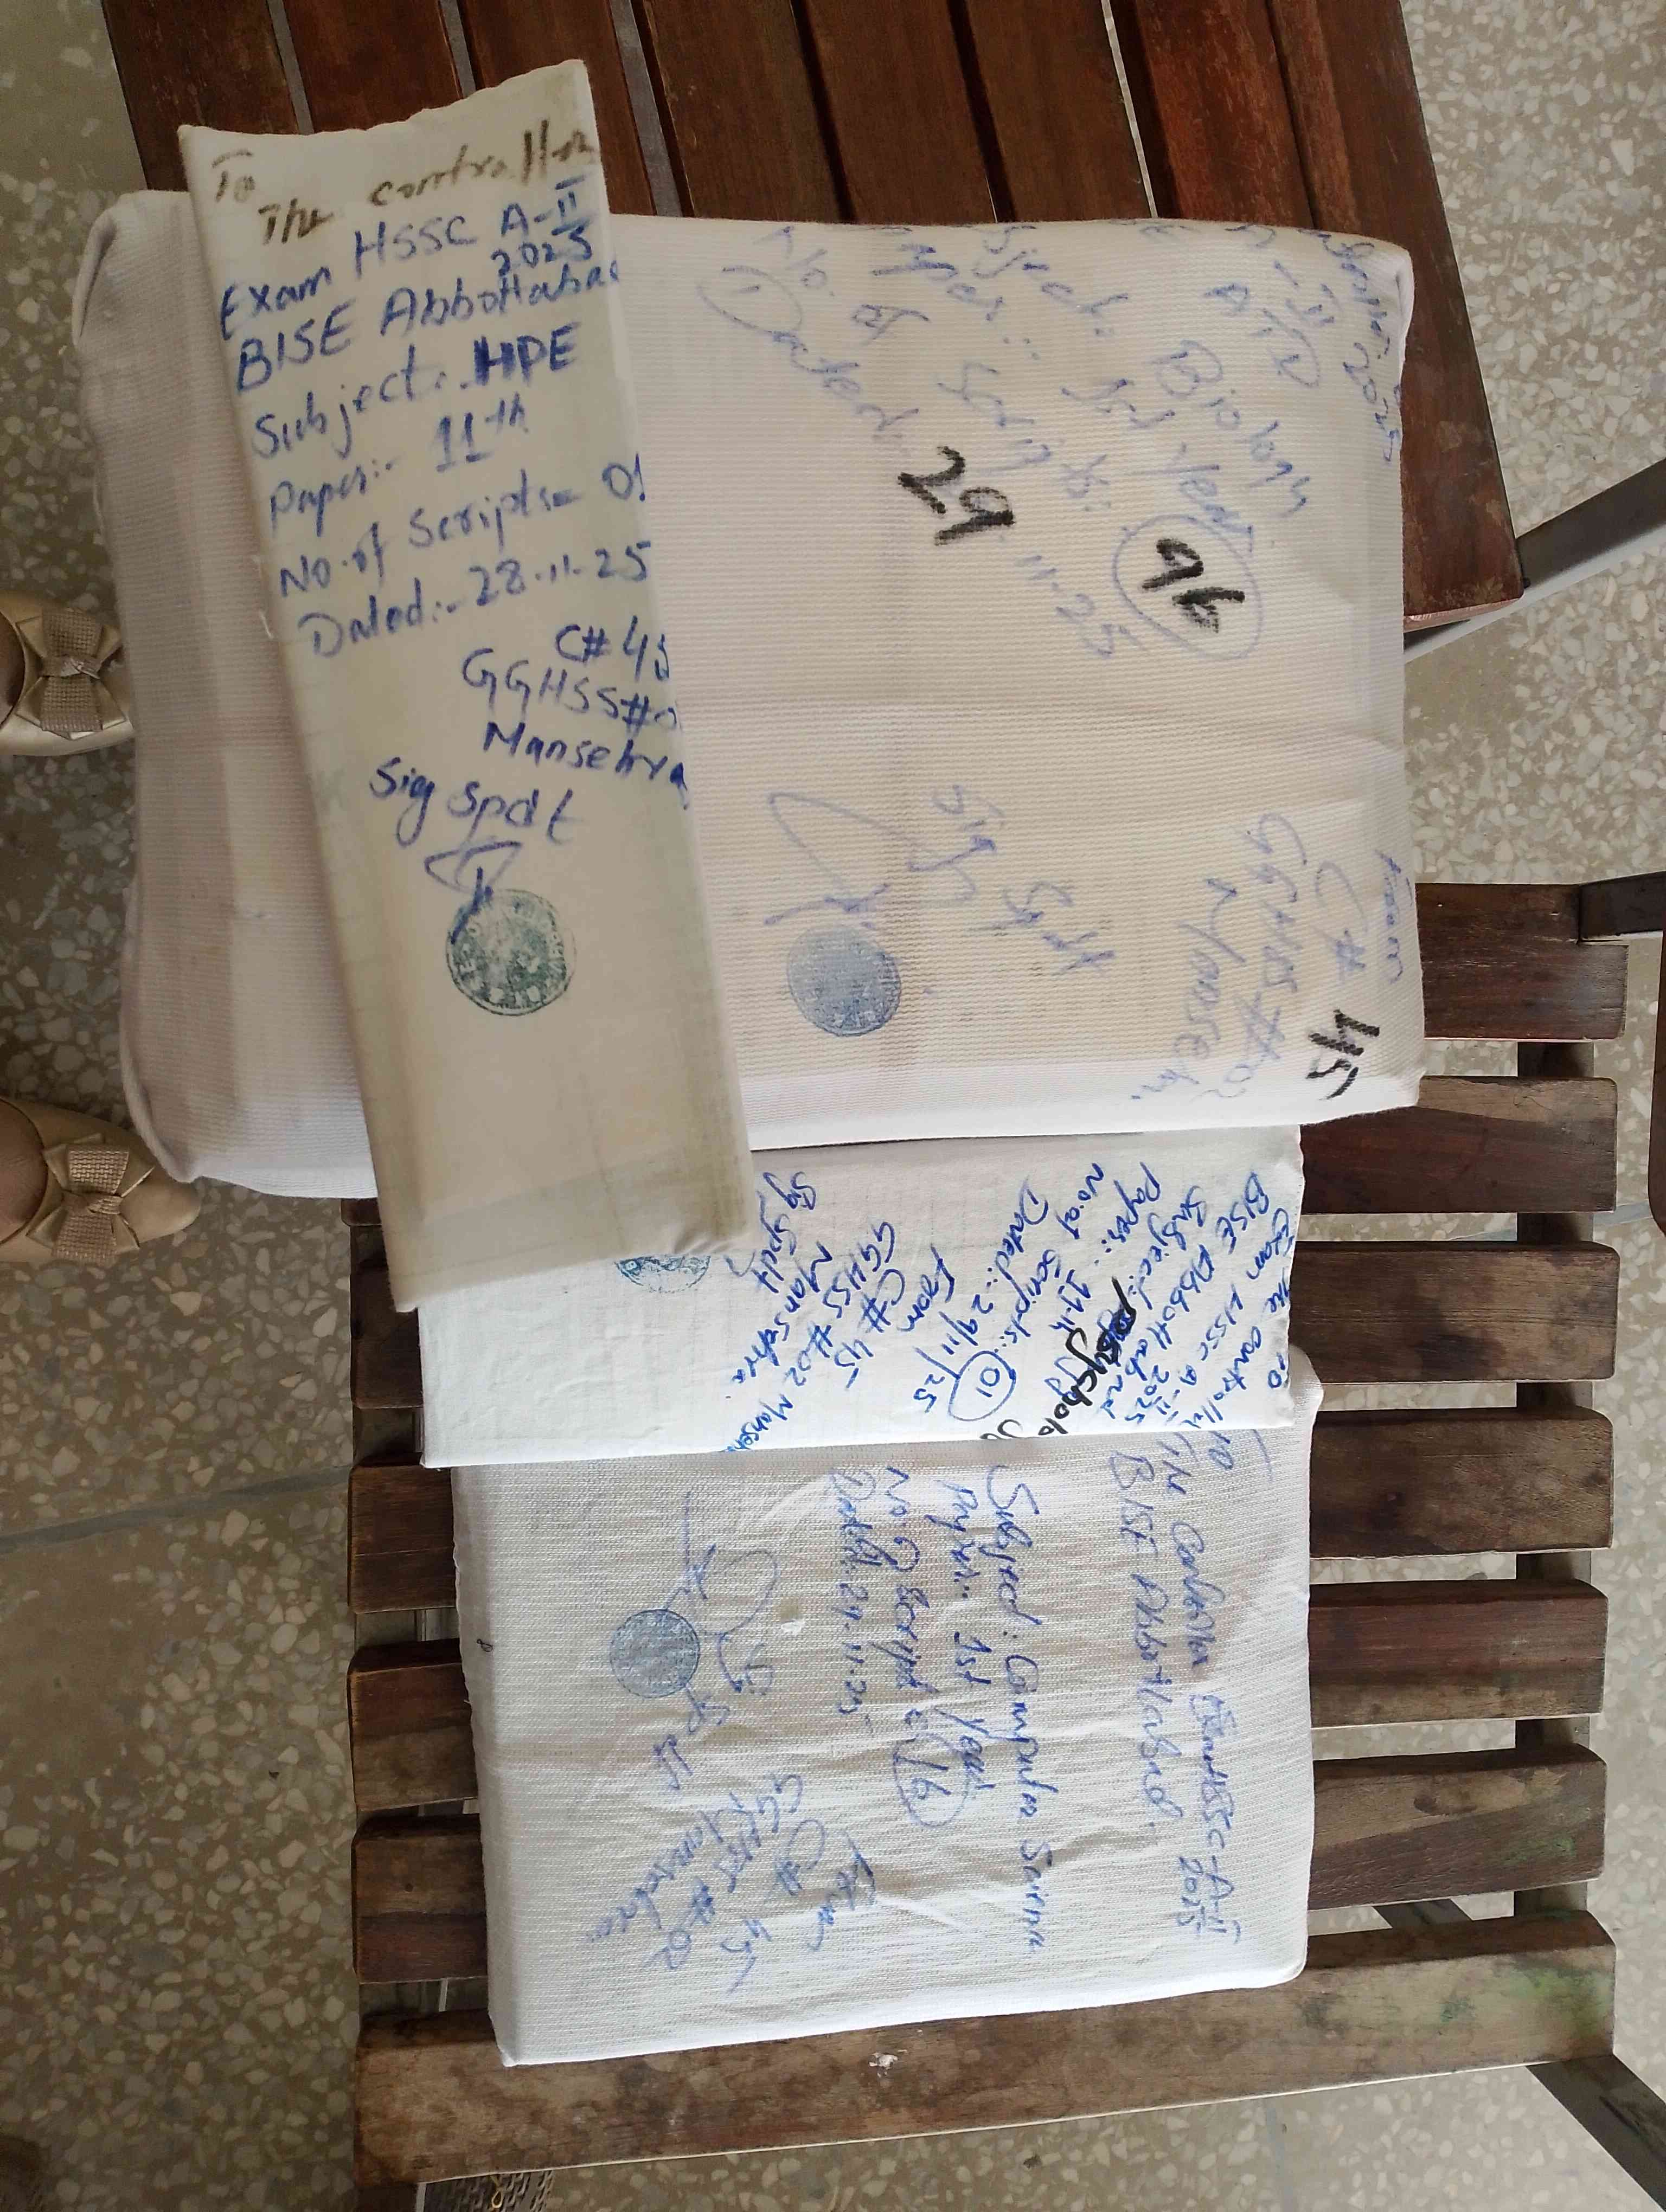 To
The controller
Exam HSSC A-II
2025
BISE Abbottabad
Subject:- HPE
Paper:- 11th
No. of Scripts= 01
Dated:- 28.11.25
C# 45
GGHSS#0
Mansehra
Sig Spdt
Biology
29
11-25
From
C# 45
GGHSS #02
Mansehra
Sig Spdt
To
The controller
Exam HSSC A-II
2025
BISE Abbottabad
Subject: psychology
Paper:: 11th
No of Scripts: 01
Dated:- 29/11/25
From
C# 45
GGHSS #02 Manseh
Mansehra
Sig Spdt
To
The Controller Exam HSSC A-II
2025
BISE Abbottabad
Subject: Computer Science
Paper:. 1st Year
No of Script = 16
Dated: 29.11.25
From
C# 45
GGHSS #02
Mansehra
Sig Spdt